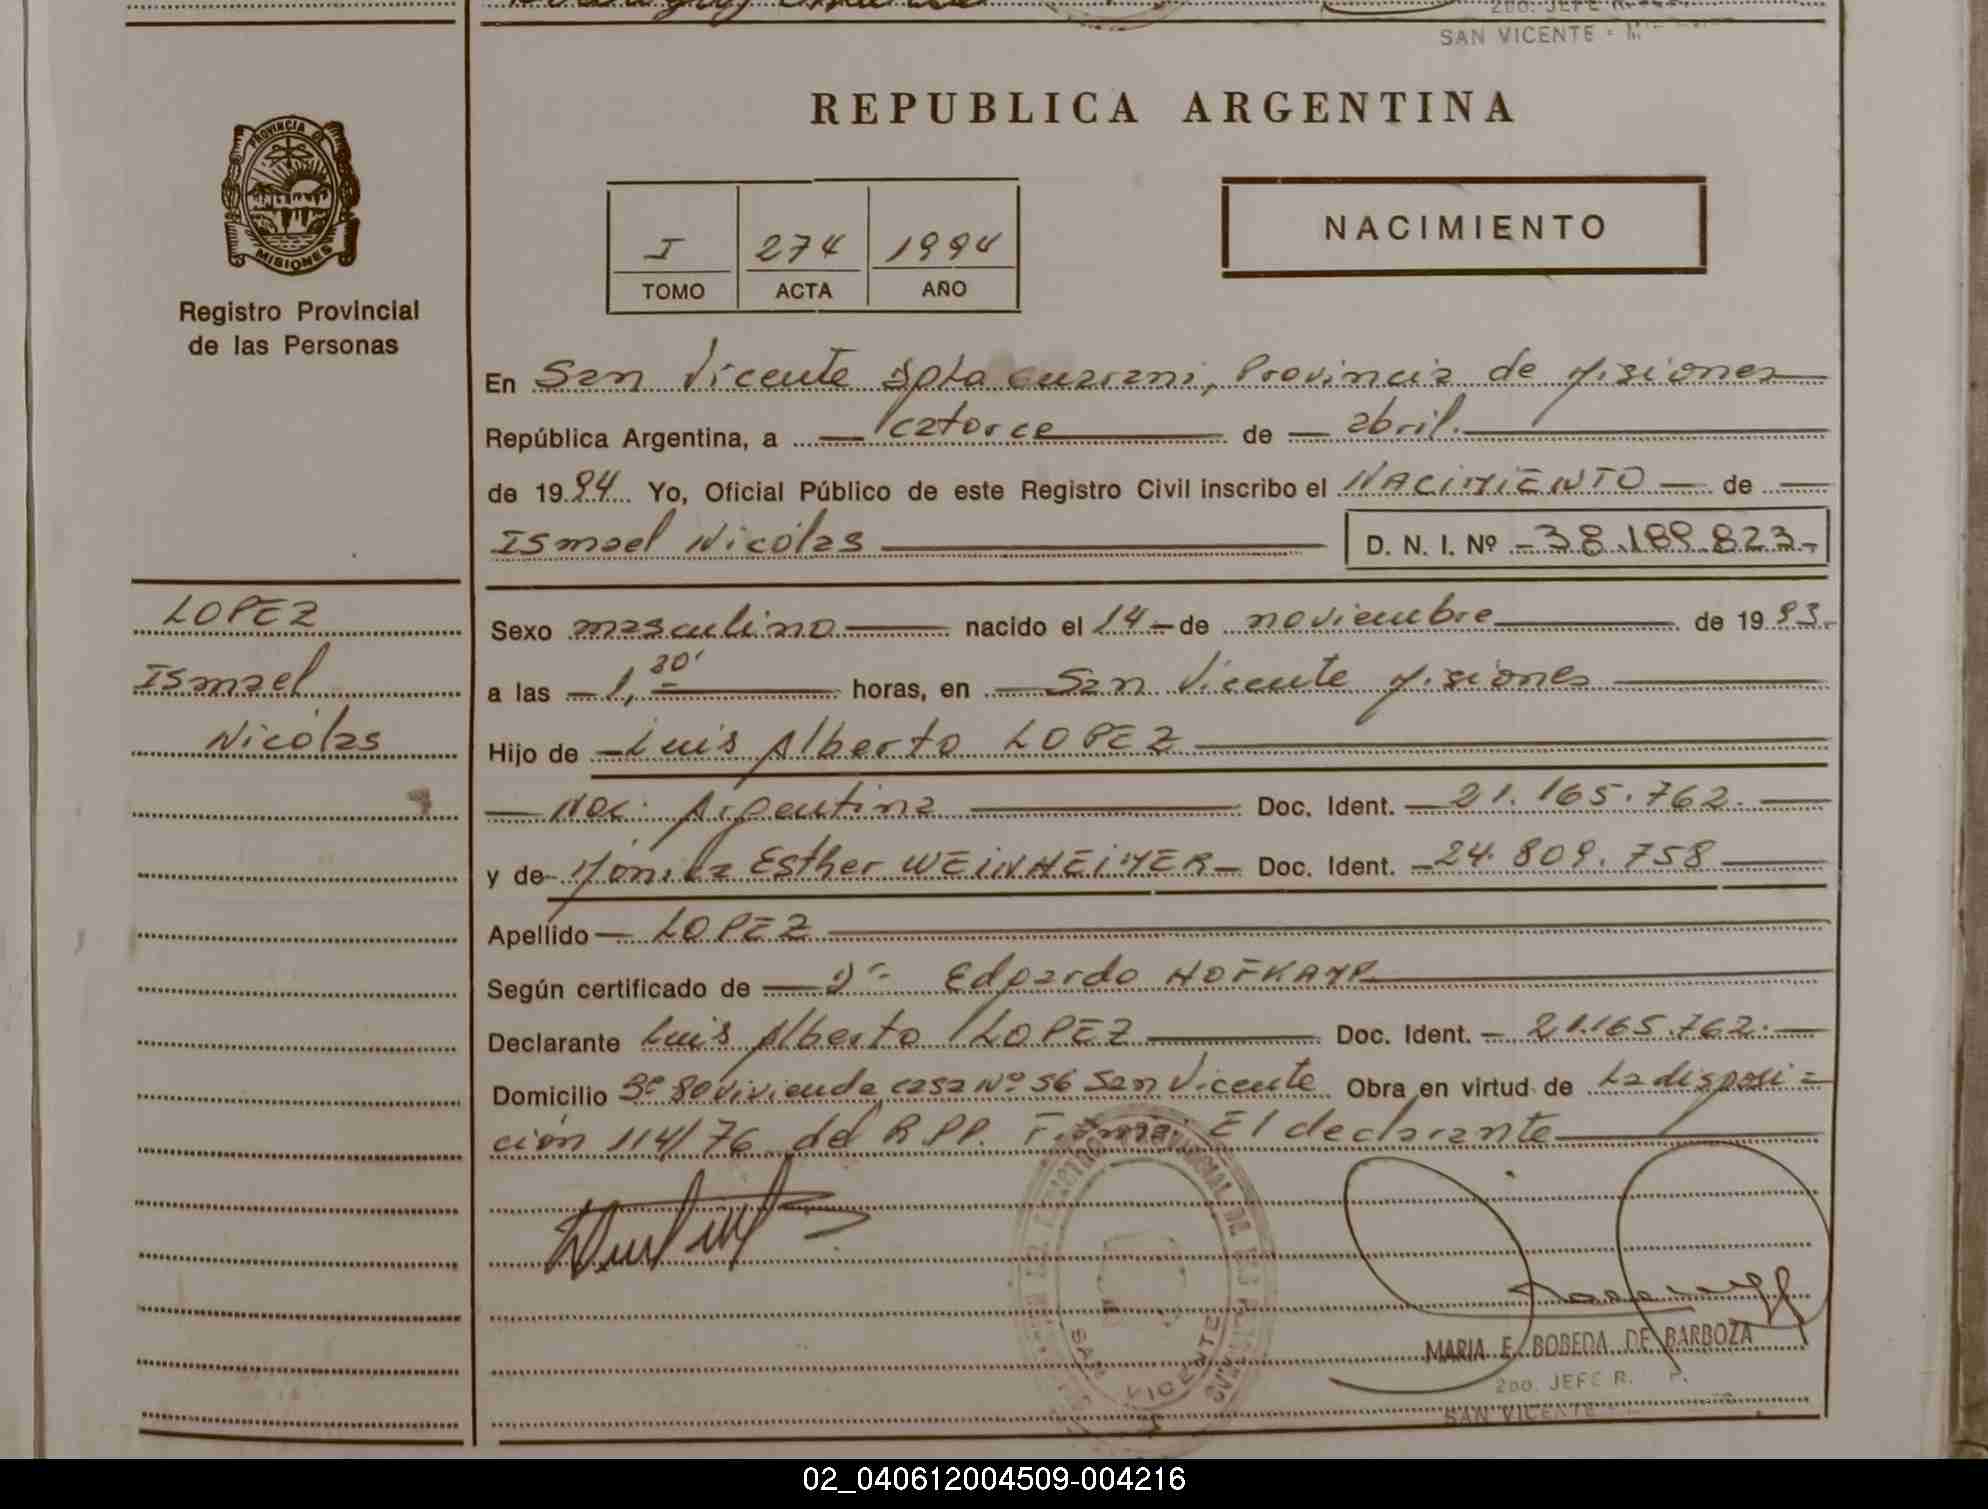 SAN VICENTE - M
REPUBLICA ARGENTINA
PROVINCIA DE
MISIONES
Registro Provincial
de las Personas
I 274 1994
TOMO ACTA AÑO
NACIMIENTO
En San Vicente Dpto Guarani, Provincia de Misiones
República Argentina, a catorce de abril.
de 1994 Yo, Oficial Público de este Registro Civil inscribo el NACIMIENTO de
Ismael Nicólas D. N. I. Nº -38.189.823-
LOPEZ
Ismael
Nicólas
Sexo masculino nacido el 14 de noviembre de 1993.
a las 1,30' horas, en San Vicente Misiones
Hijo de Luis Alberto LOPEZ
Nac. Argentina Doc. Ident. 21.165.762.
y de Mónica Esther WEINHEIMER Doc. Ident. 24.809.758
Apellido LOPEZ
Según certificado de Dr. Edgardo HOFKAMP
Declarante Luis Alberto LOPEZ Doc. Ident. 21.165.762.
Domicilio 3º 80 vivienda casa Nº 56 San Vicente Obra en virtud de La disposi-
ción 114/76 del RPP. Firma: El declarante
SAN VICENTE
MARIA E. BOBEDA DE BARBOZA
2do. JEFE R. P.
SAN VICENTE
02_040612004509-004216